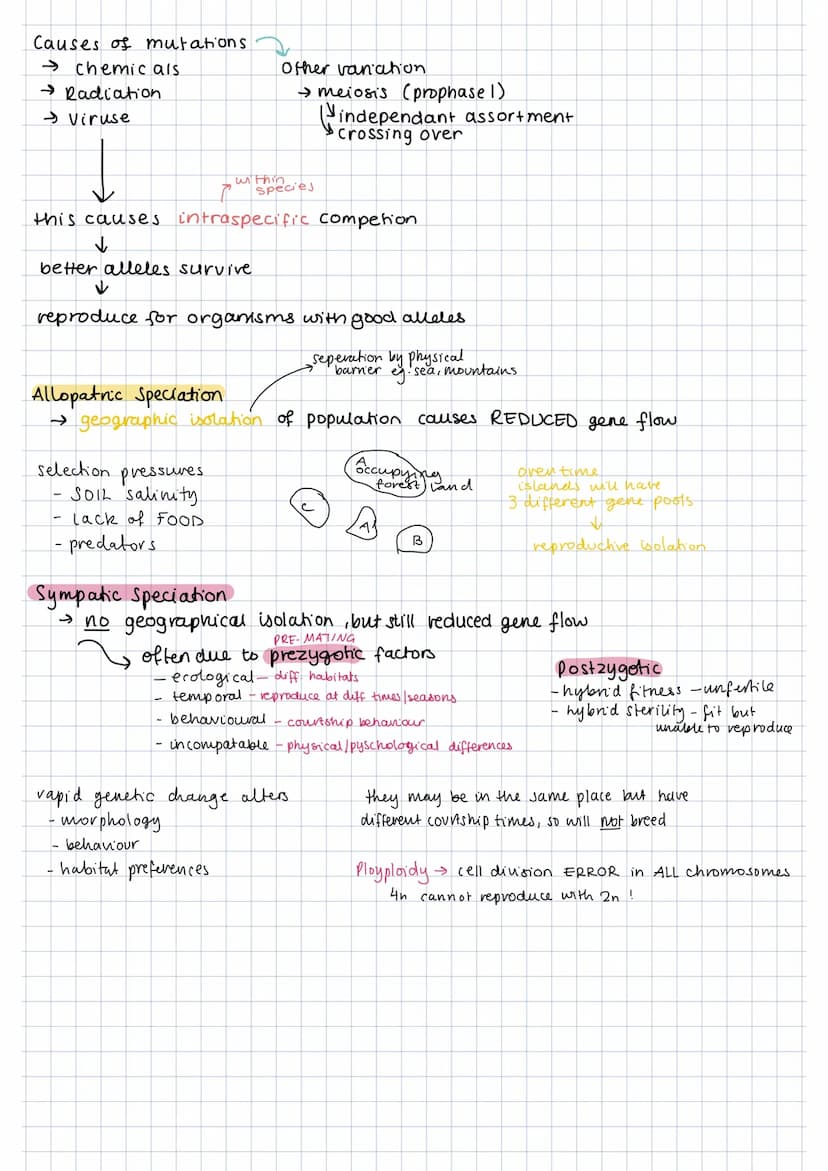 Causes of mutations
→ Chemicals
→ Radiation
→ Viruse
Other variation
→ meiosis (prophase 1)
independant assortment
crossing over
within
species
this causes intraspecific competion
better alleles survive
reproduce for organisms with good alleles
seperation by physical
barrier eg. sea, mountains
Allopatric Speciation
→ geographic isolation of population causes REDUCED gene flow
selection pressures
- SOIL salinity
- Lack of FOOD
- predators
A
occupying
forest land
C
A
B
over time
islands will have
3 different gene pools
reproductive isolation
Sympatic Speciation
→ no geographical isolation, but still reduced gene flow
PRE-MATING
often due to prezygotic factors
- ecological - diff. habitats
- temporal - reproduce at diff times/seasons
- behavioural - courtship behaviour
- incompatable - physical/pyschological differences
Postzygotic
- hybrid fitness - unfertile
- hybrid sterility - fit but
unable to reproduce
rapid genetic change alters
- morphology
- behaviour
- habitat preferences
they may be in the same place but have
different courtship times, so will not breed
Ployploidy → cell division ERROR in ALL chromosomes
4n cannot reproduce with 2n !